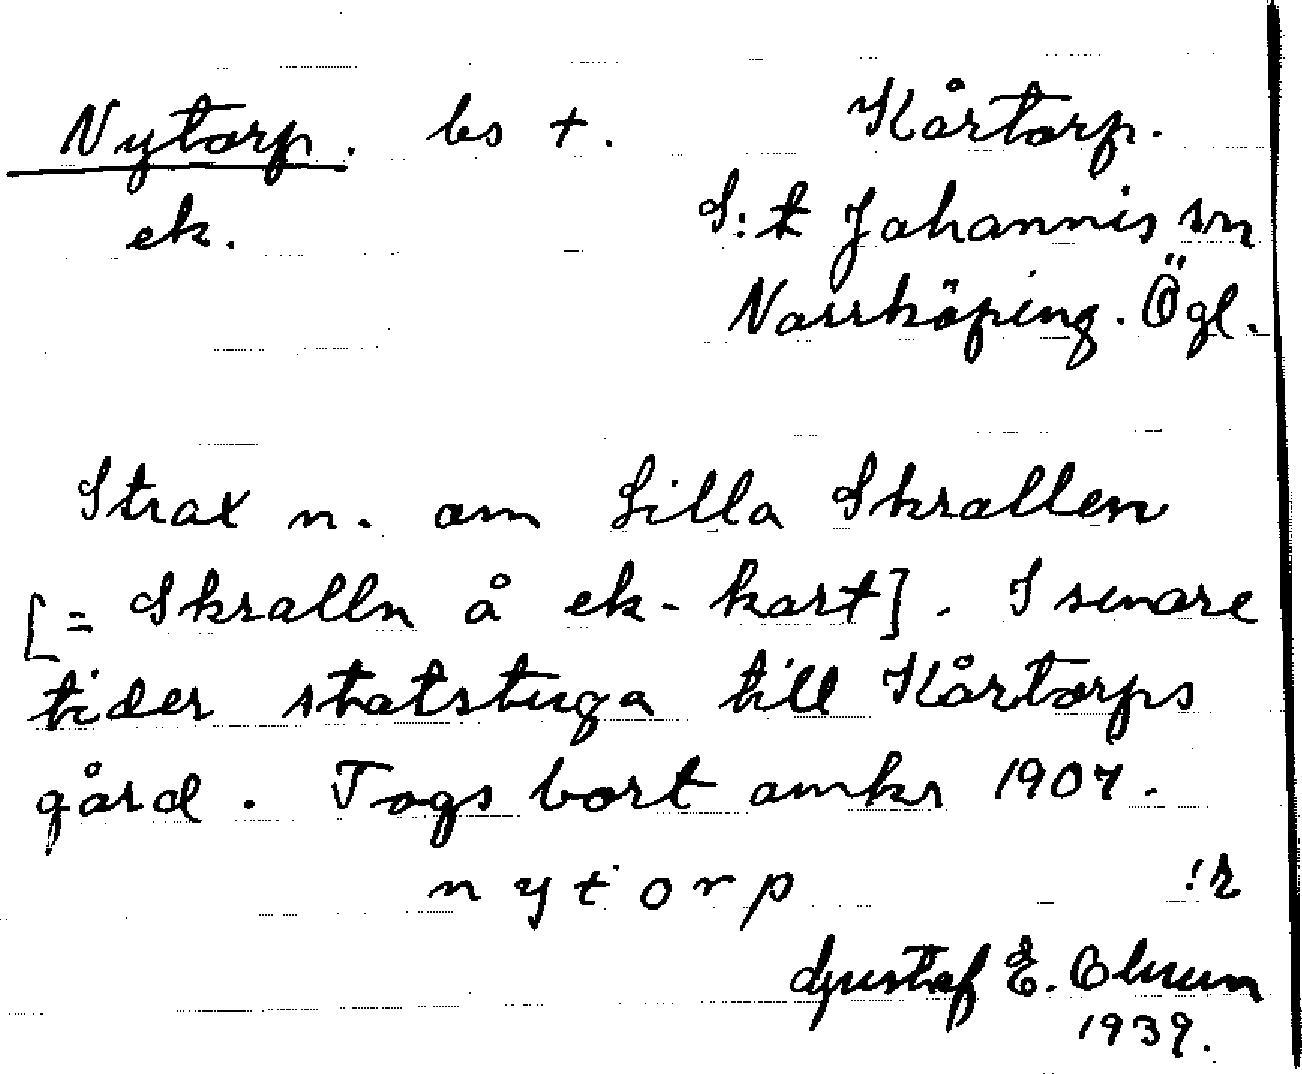 Nytorp. bs +. Kårtorp.
ek. S:t Johannis sn
Norrköping. Ögl.
Strax n. om Lilla Skrallen
[= Skralln å ek-kart]. I senare
tider statstuga till Kårtorps
gård. Togs bort omkr 1907.
nytorp
Gustaf E. Olsson
1939.